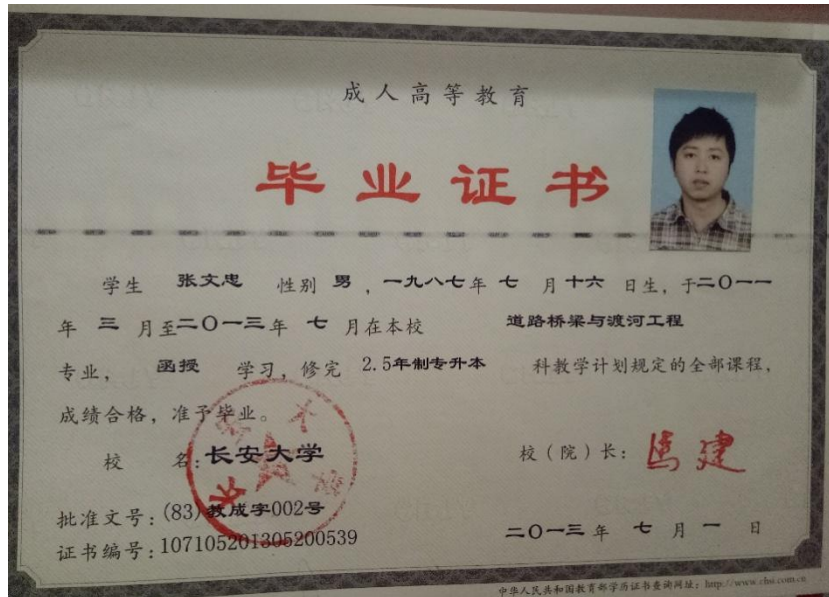 成人高等教育
毕业证书
学生 张文忠 性别 男 ,一九八七年 七 月十六 日生,于二〇一一
年 三 月至二〇一三年 七 月在本校 道路桥梁与渡河工程
专业, 函授 学习,修完 2.5年制专升本 科教学计划规定的全部课程,
成绩合格,准予毕业。
校 名:长安大学 校(院)长:
批准文号:(83)教成字002号
证书编号:107105201305200539 二〇一三年 七 月 一 日
中华人民共和国教育部学历证书查询网址:http://www.chsi.com.cn